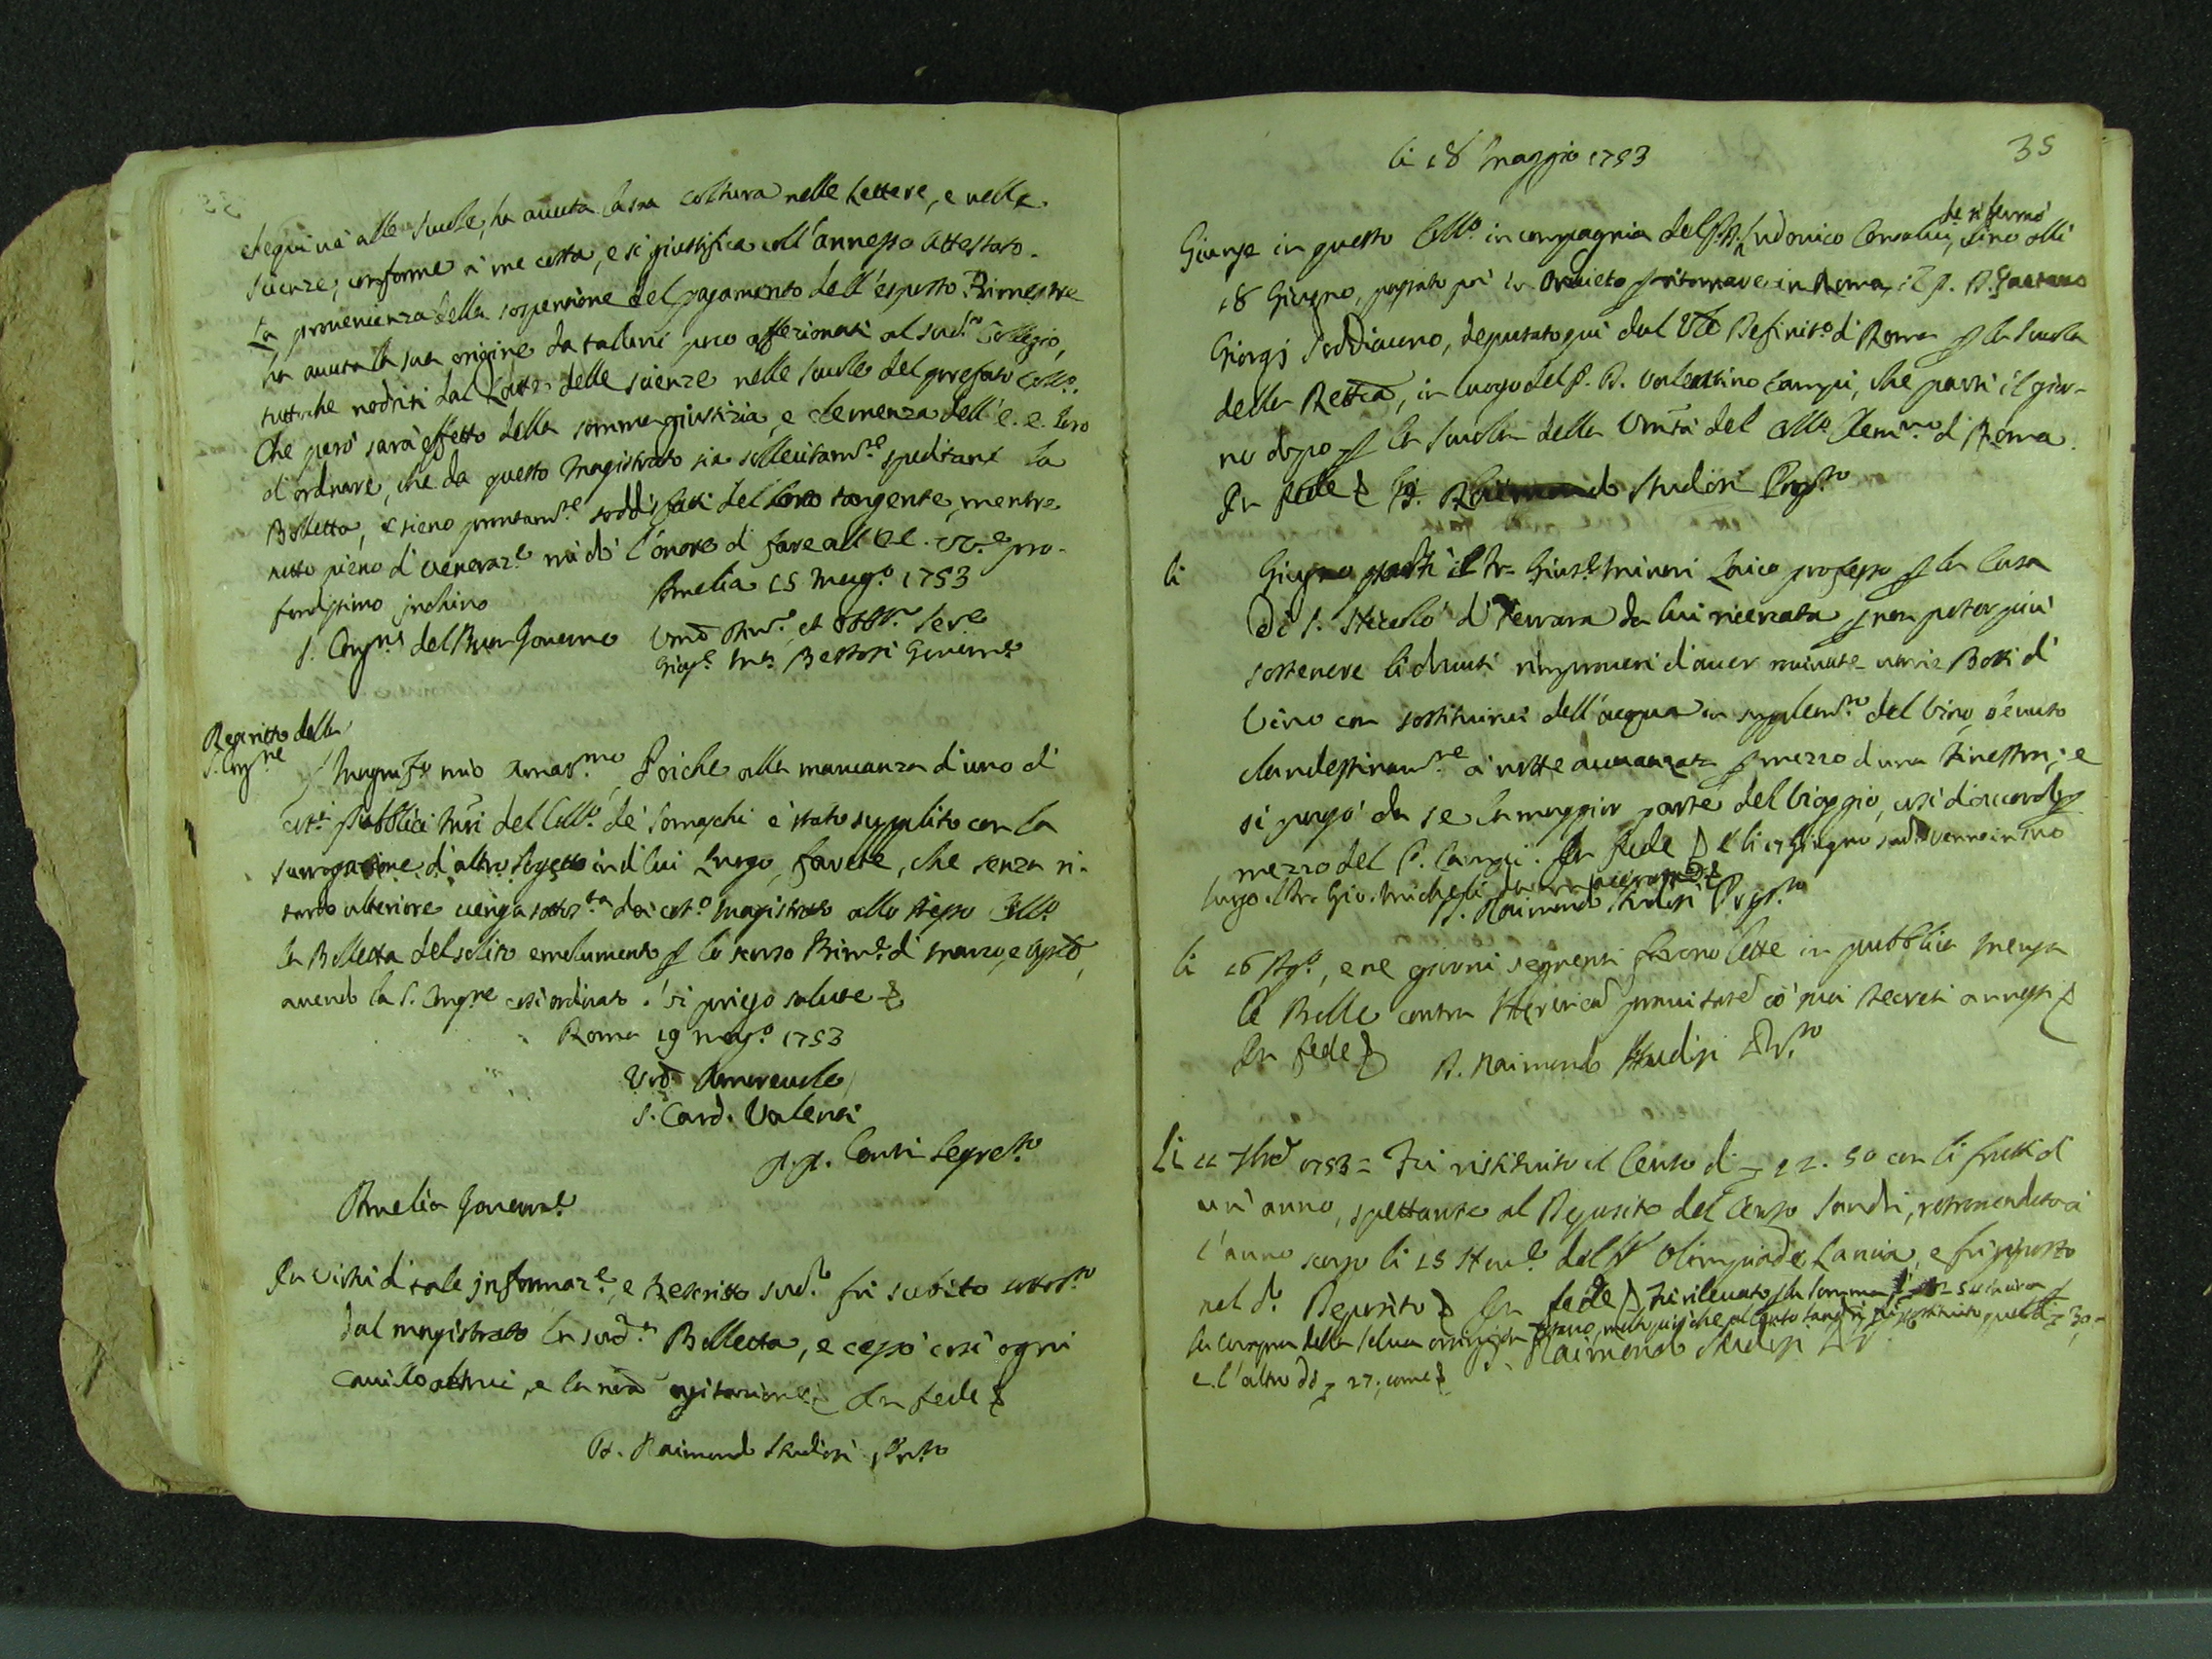 che quivi alle Scuole, ha avuta la sua coltura nelle Lettere, e nelle
Scienze, conforme à me costa, e si giustifica coll'annesso Attestato.
La provenienza della sospensione del pagamento dell'esposto Bimestre
ha avuta la sua origine da taluni poco affezionati al sud.º Collegio,
tutto che nodriti dal Latte delle scienze nelle Scuole del prefato Coll.º.
Che però sarà effetto della somma giustizia, e clemenza dell'E. E. Loro
d'ordinare, che da questo Magistrato sia sollecitam.te spedita la
Bolletta, e sieno prontam.te soddisfatti del loro tangente, mentre
tutto pieno di veneraz.e mi dò l'onore di fare all'EE. VV.e pro-
fondissimo inchino Amelia 15 Mag.º 1753
S. Cong.ne del Buon Governo
Gius.e M.a Bettosi Govern.e
Rescritto della
S. Cong.ne
Magnif.co mio Amat.mo Poiche alla mancanza d'uno di
cot.i pubblici M̃ri del Coll.º de Somaschi è stato supplito con la
surrogazione d'altro sogetto in di lui luogo, farete, che senza ri-
tardo ulteriore venga sottos.ta da cot.º Magistrato allo stesso Coll.º
la Bolletta del solito emolumento p lo scorso Bim.e di Marzo, e Aprile,
avendo la S. Cong.ne così ordinato. Vi priego salute
Roma 19 Mag.º 1753
Vro Amorevole
S. Card. Valenti
P. P. Conti Segret.rio
Amelia Governat.e
In vista di tale informaz.e, e Rescritto sud.º fù subito sottos.ta
dal Magistrato la sud.a Bolletta, e cessò così ogni
cavillo altrui, e la nr̃a agitazione In fede
D. Raimondo Studiosi Prep.to
35
li 18 Maggio 1753
che si fermò
Giunse in questo Coll.º in compagnia del P. D. Ludovico sino alli
18 Giugno, passato poi in Orvieto p ritornare in Roma, il P. D. Gaetano
Giorgi Soddiacono, deputato qui dal Vle Definit.º di Roma p la Scuola
della Rettca, in luogo del P. D. Valentino Campi, che partì il gior-
no dopo p la Scuola della Umtà del Coll.º Clem.no di Roma.
In fede D. Raimondo Studiosi Prep.to
li Giugno partì il fr. Gius.e Laico professo p la Casa
di S. Nicolò di Ferrara da lui ricercata p non poter più
sostenere li dovuti rimproveri d'aver rovinate varie Botti di
Vino con sostituirvi dell'acqua in supplem.to del Vino bevuto
clandestinam.te à notte avvanzata p mezzo d'una finestra; e
si pagò da se la maggior parte del Viaggio, così d'accordo p
mezzo del P. Campi. In fede E li 17 Giugno sud.º venne in suo
luogo il fr. Gio. Micheli
D. Raimondo Studiosi Prep.to
li 16 Ag.º, e ne giorni seguenti furono lette in pubblica Mensa
le Bolle contra Hæreticã pravitatẽ cò suoi Decreti annessi
In fede D. Raimondo Studiosi Prep.to
li 22 7bre 1753 = Fù ristituito il Censo di 22. 50 con li frutti d
un'anno, spettante al Deposito del Censo Sandri, retrovenduto à
l'anno scorso li 15 dalla Olimpiade Lancia, e fù riposto
nel d.º Deposito In fede Fù rilevato p la somma
la compra della Selva
e l'altro di 27, come D. Raimondo Studiosi